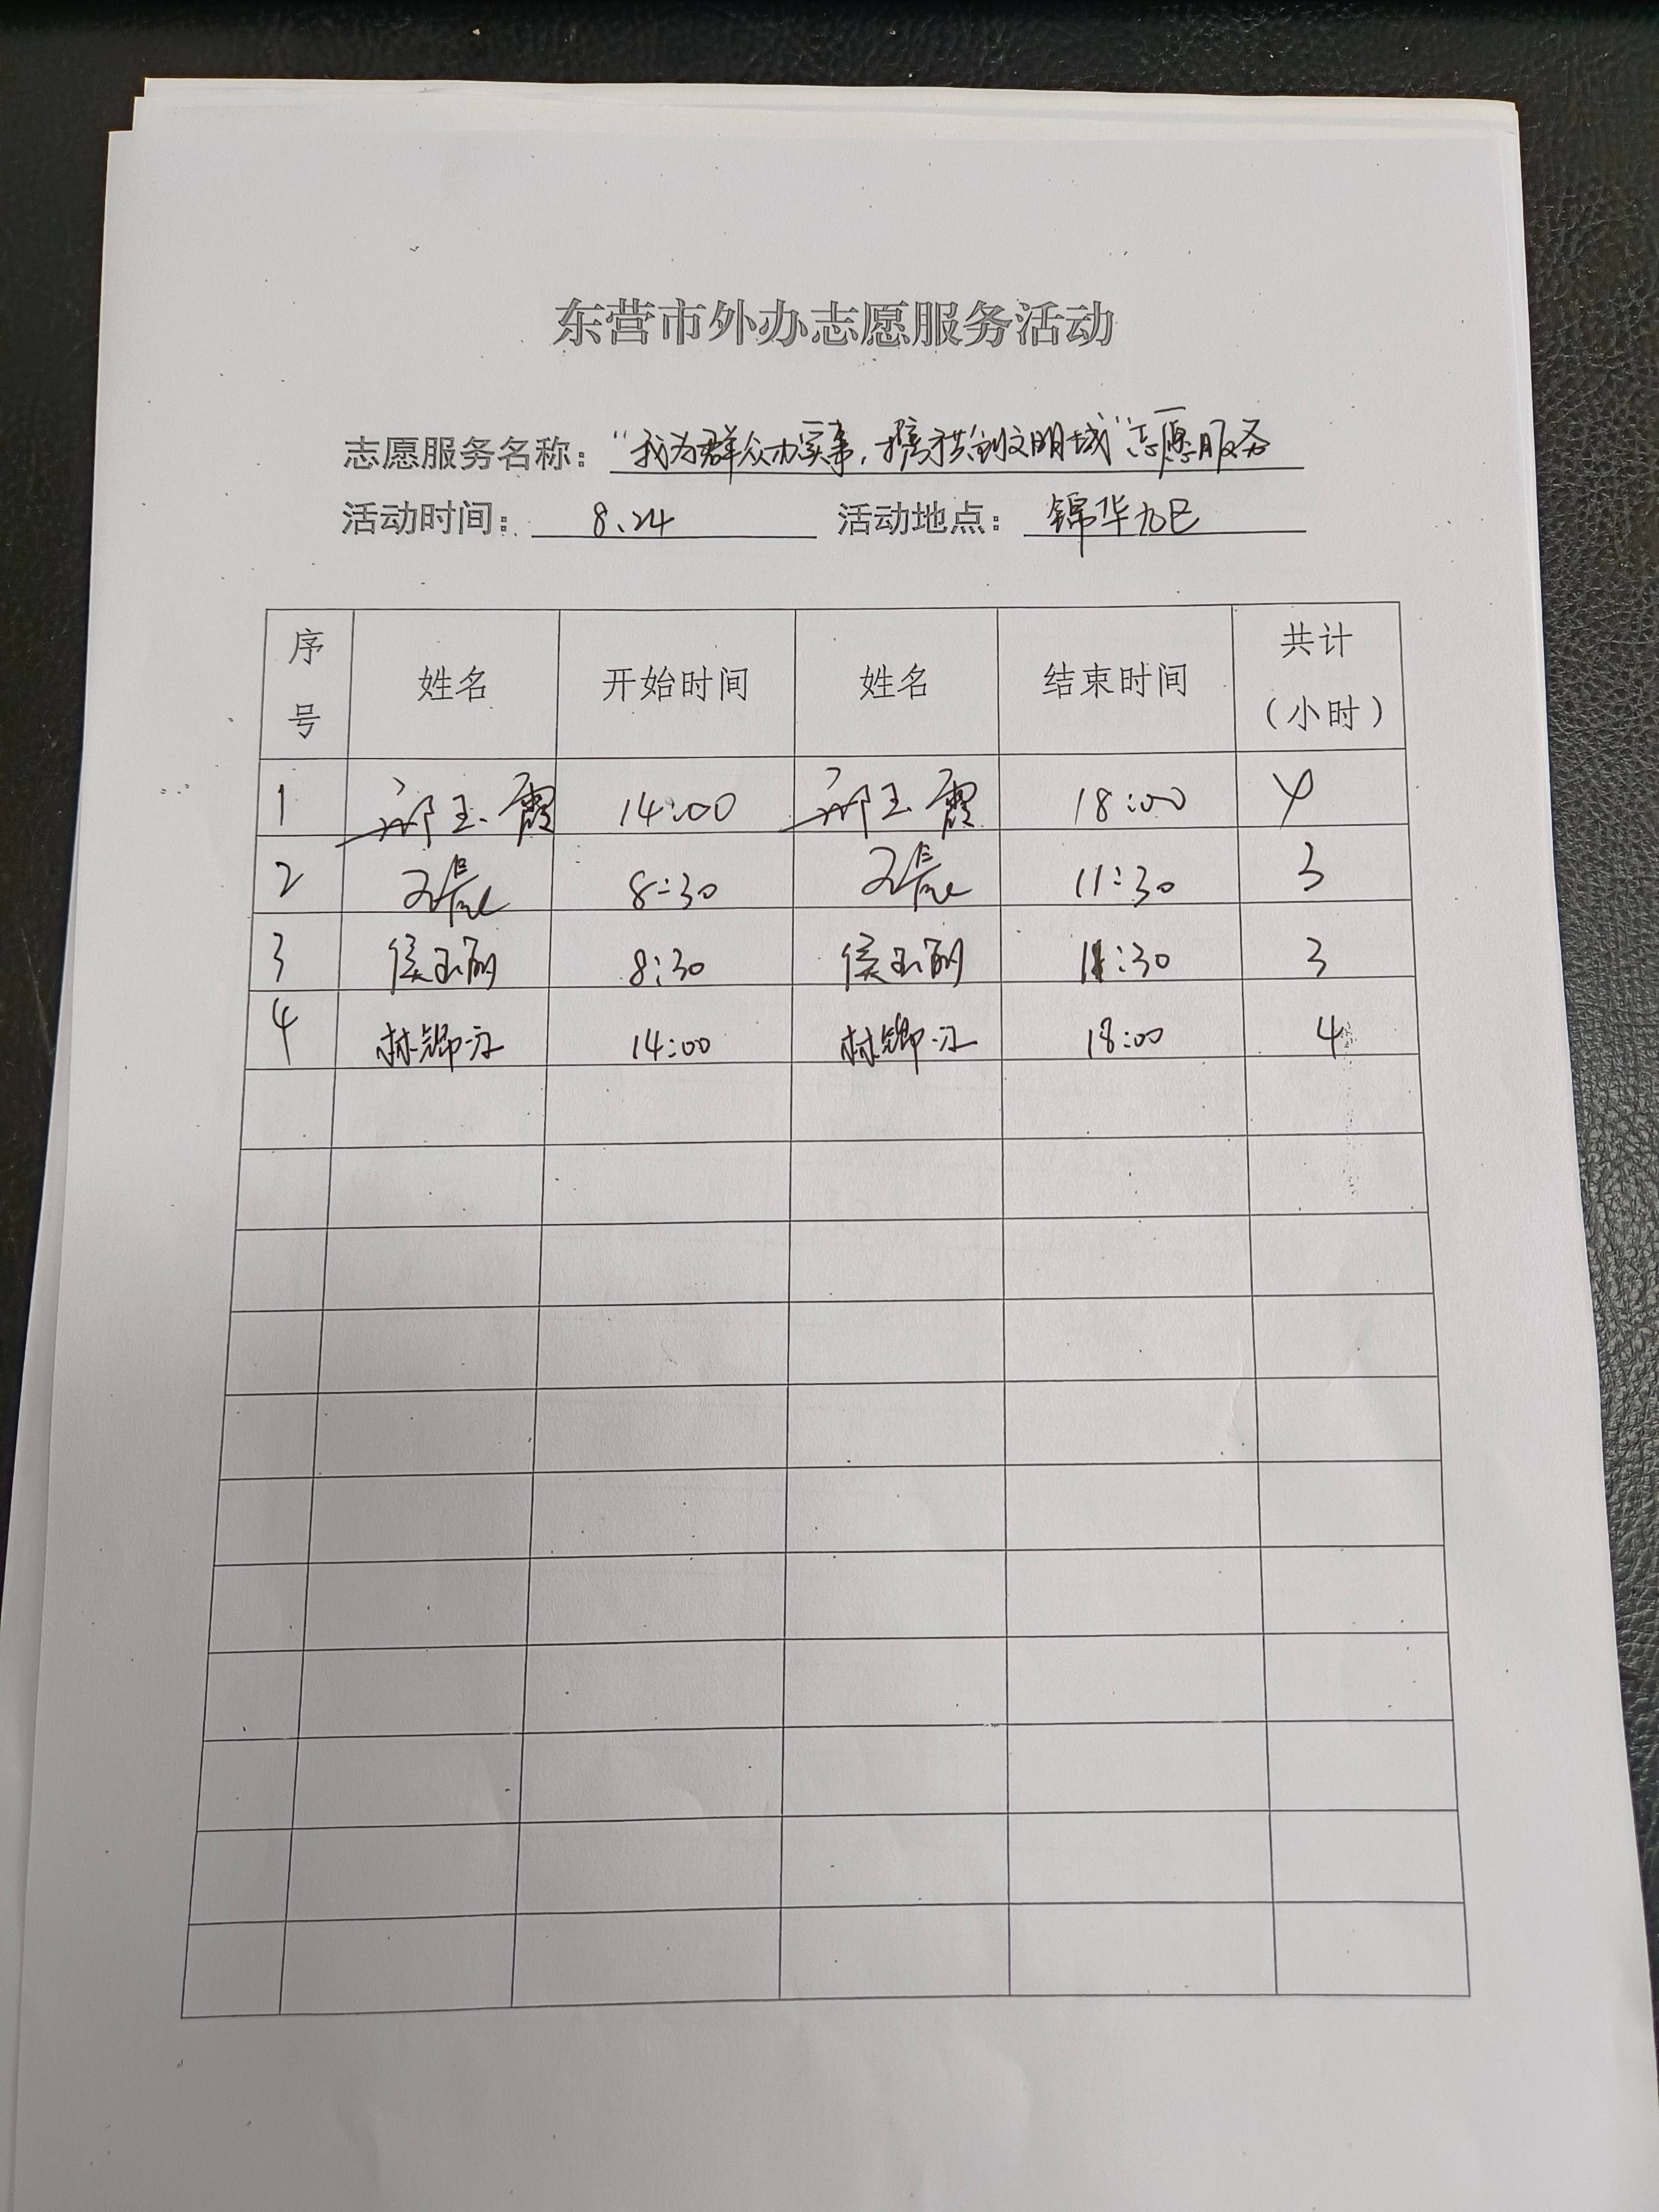 东营市外办志愿服务活动
志愿服务名称：“我为群众办实事，携手共创文明城”志愿服务
活动时间：8.24 活动地点：锦华九区
序号 姓名 开始时间 姓名 结束时间 共计（小时）
1 邢玉霞 14:00 邢玉霞 18:00 4
2 8:30 11:30 3
3 侯玉丽 8:30 侯玉丽 11:30 3
4 林 14:00 林 18:00 4